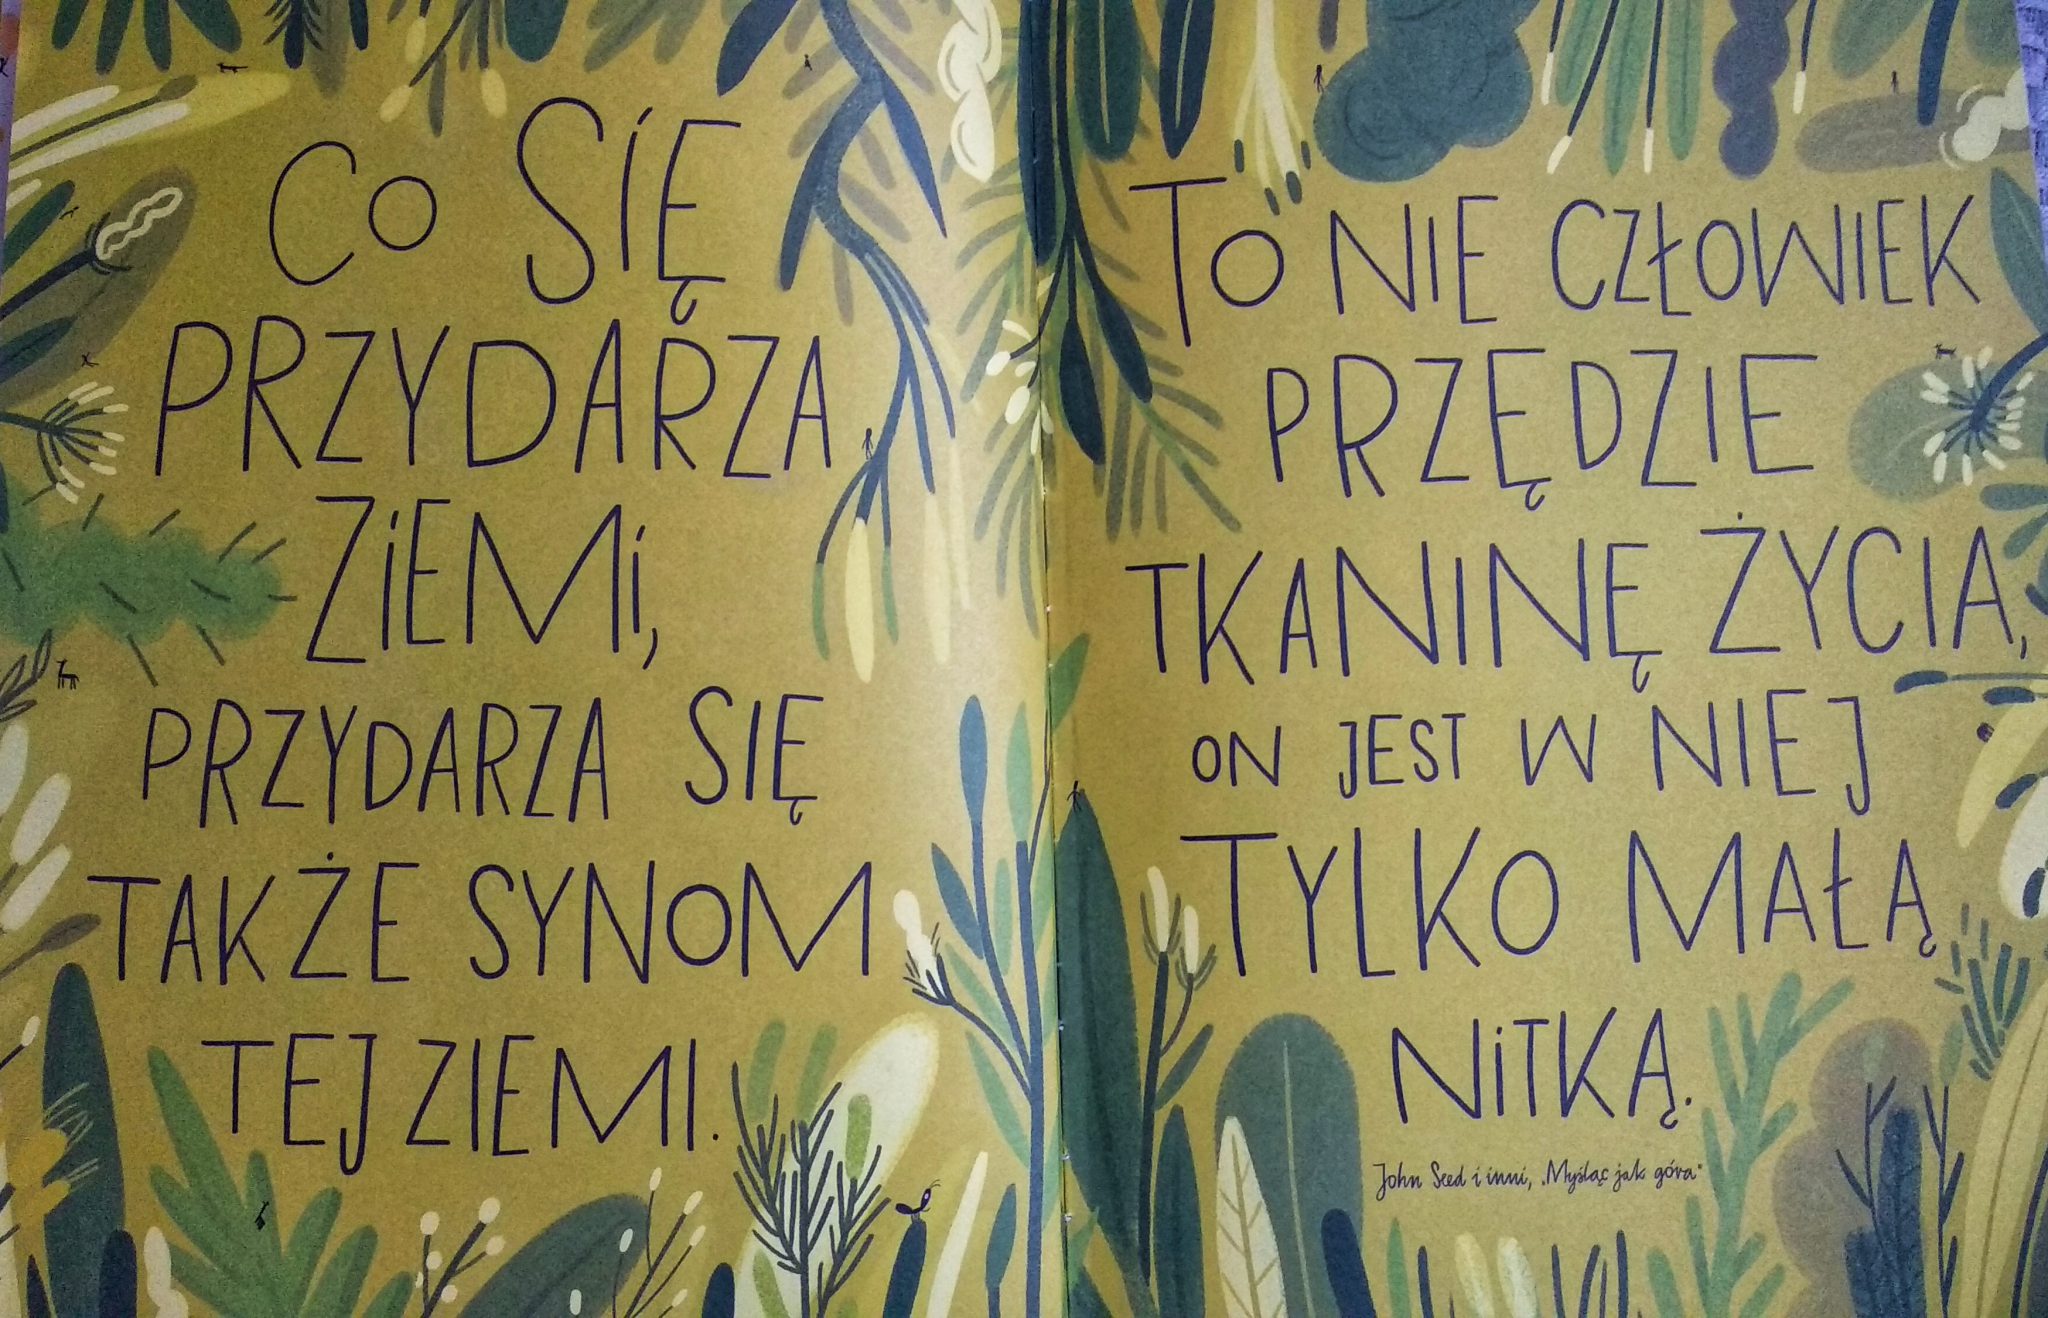 CO SIĘ
PRZYDARZA
ZIEMI,
PRZYDARZA SIĘ
TAKŻE SYNOM
TEJ ZIEMI.
TO NIE CZŁOWIEK
PRZĘDZIE
TKANINĘ ŻYCIA,
ON JEST W NIEJ
TYLKO MAŁĄ
NITKĄ.
John Seed i inni, „Myśląc jak góra"